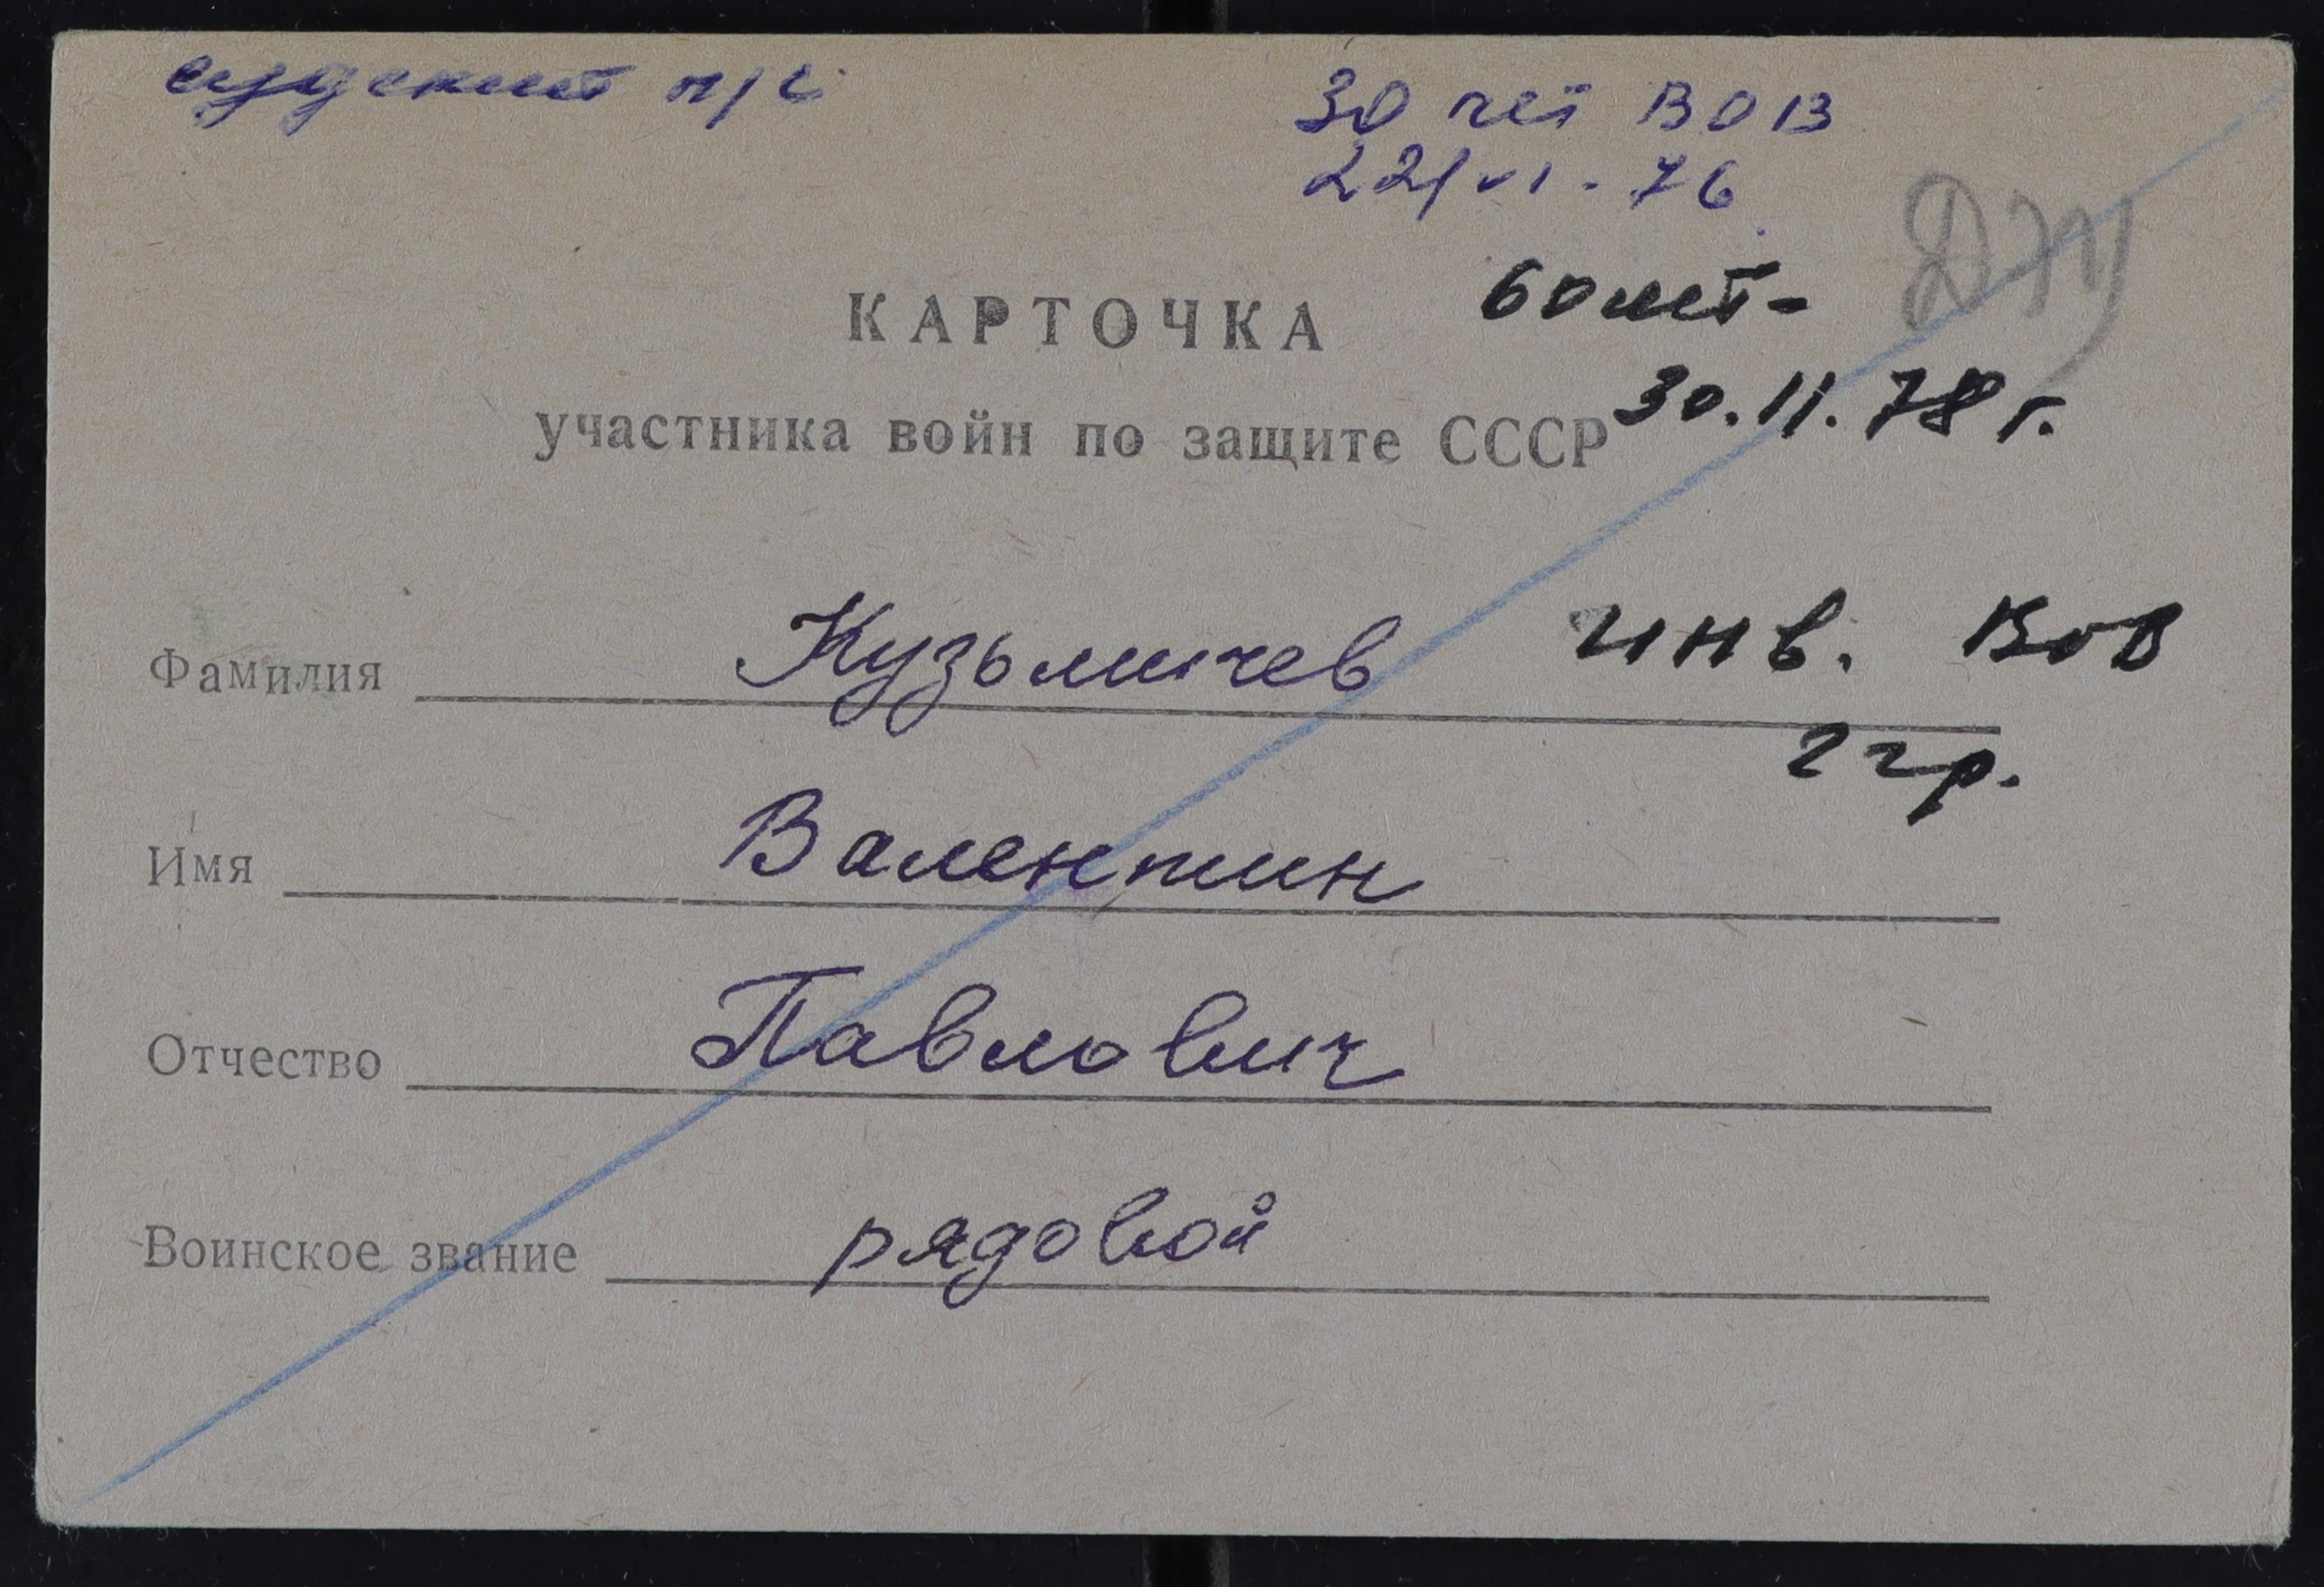 п/с
30 лет ВОВ
22/VI - 76
60 лет -
КАРТОЧКА
30.11.78 г.
участника войн по защите СССР
Фамилия Кузьмичев инв. ВОВ
2 гр.
Имя Валентин
Отчество Павлович
Воинское звание рядовой